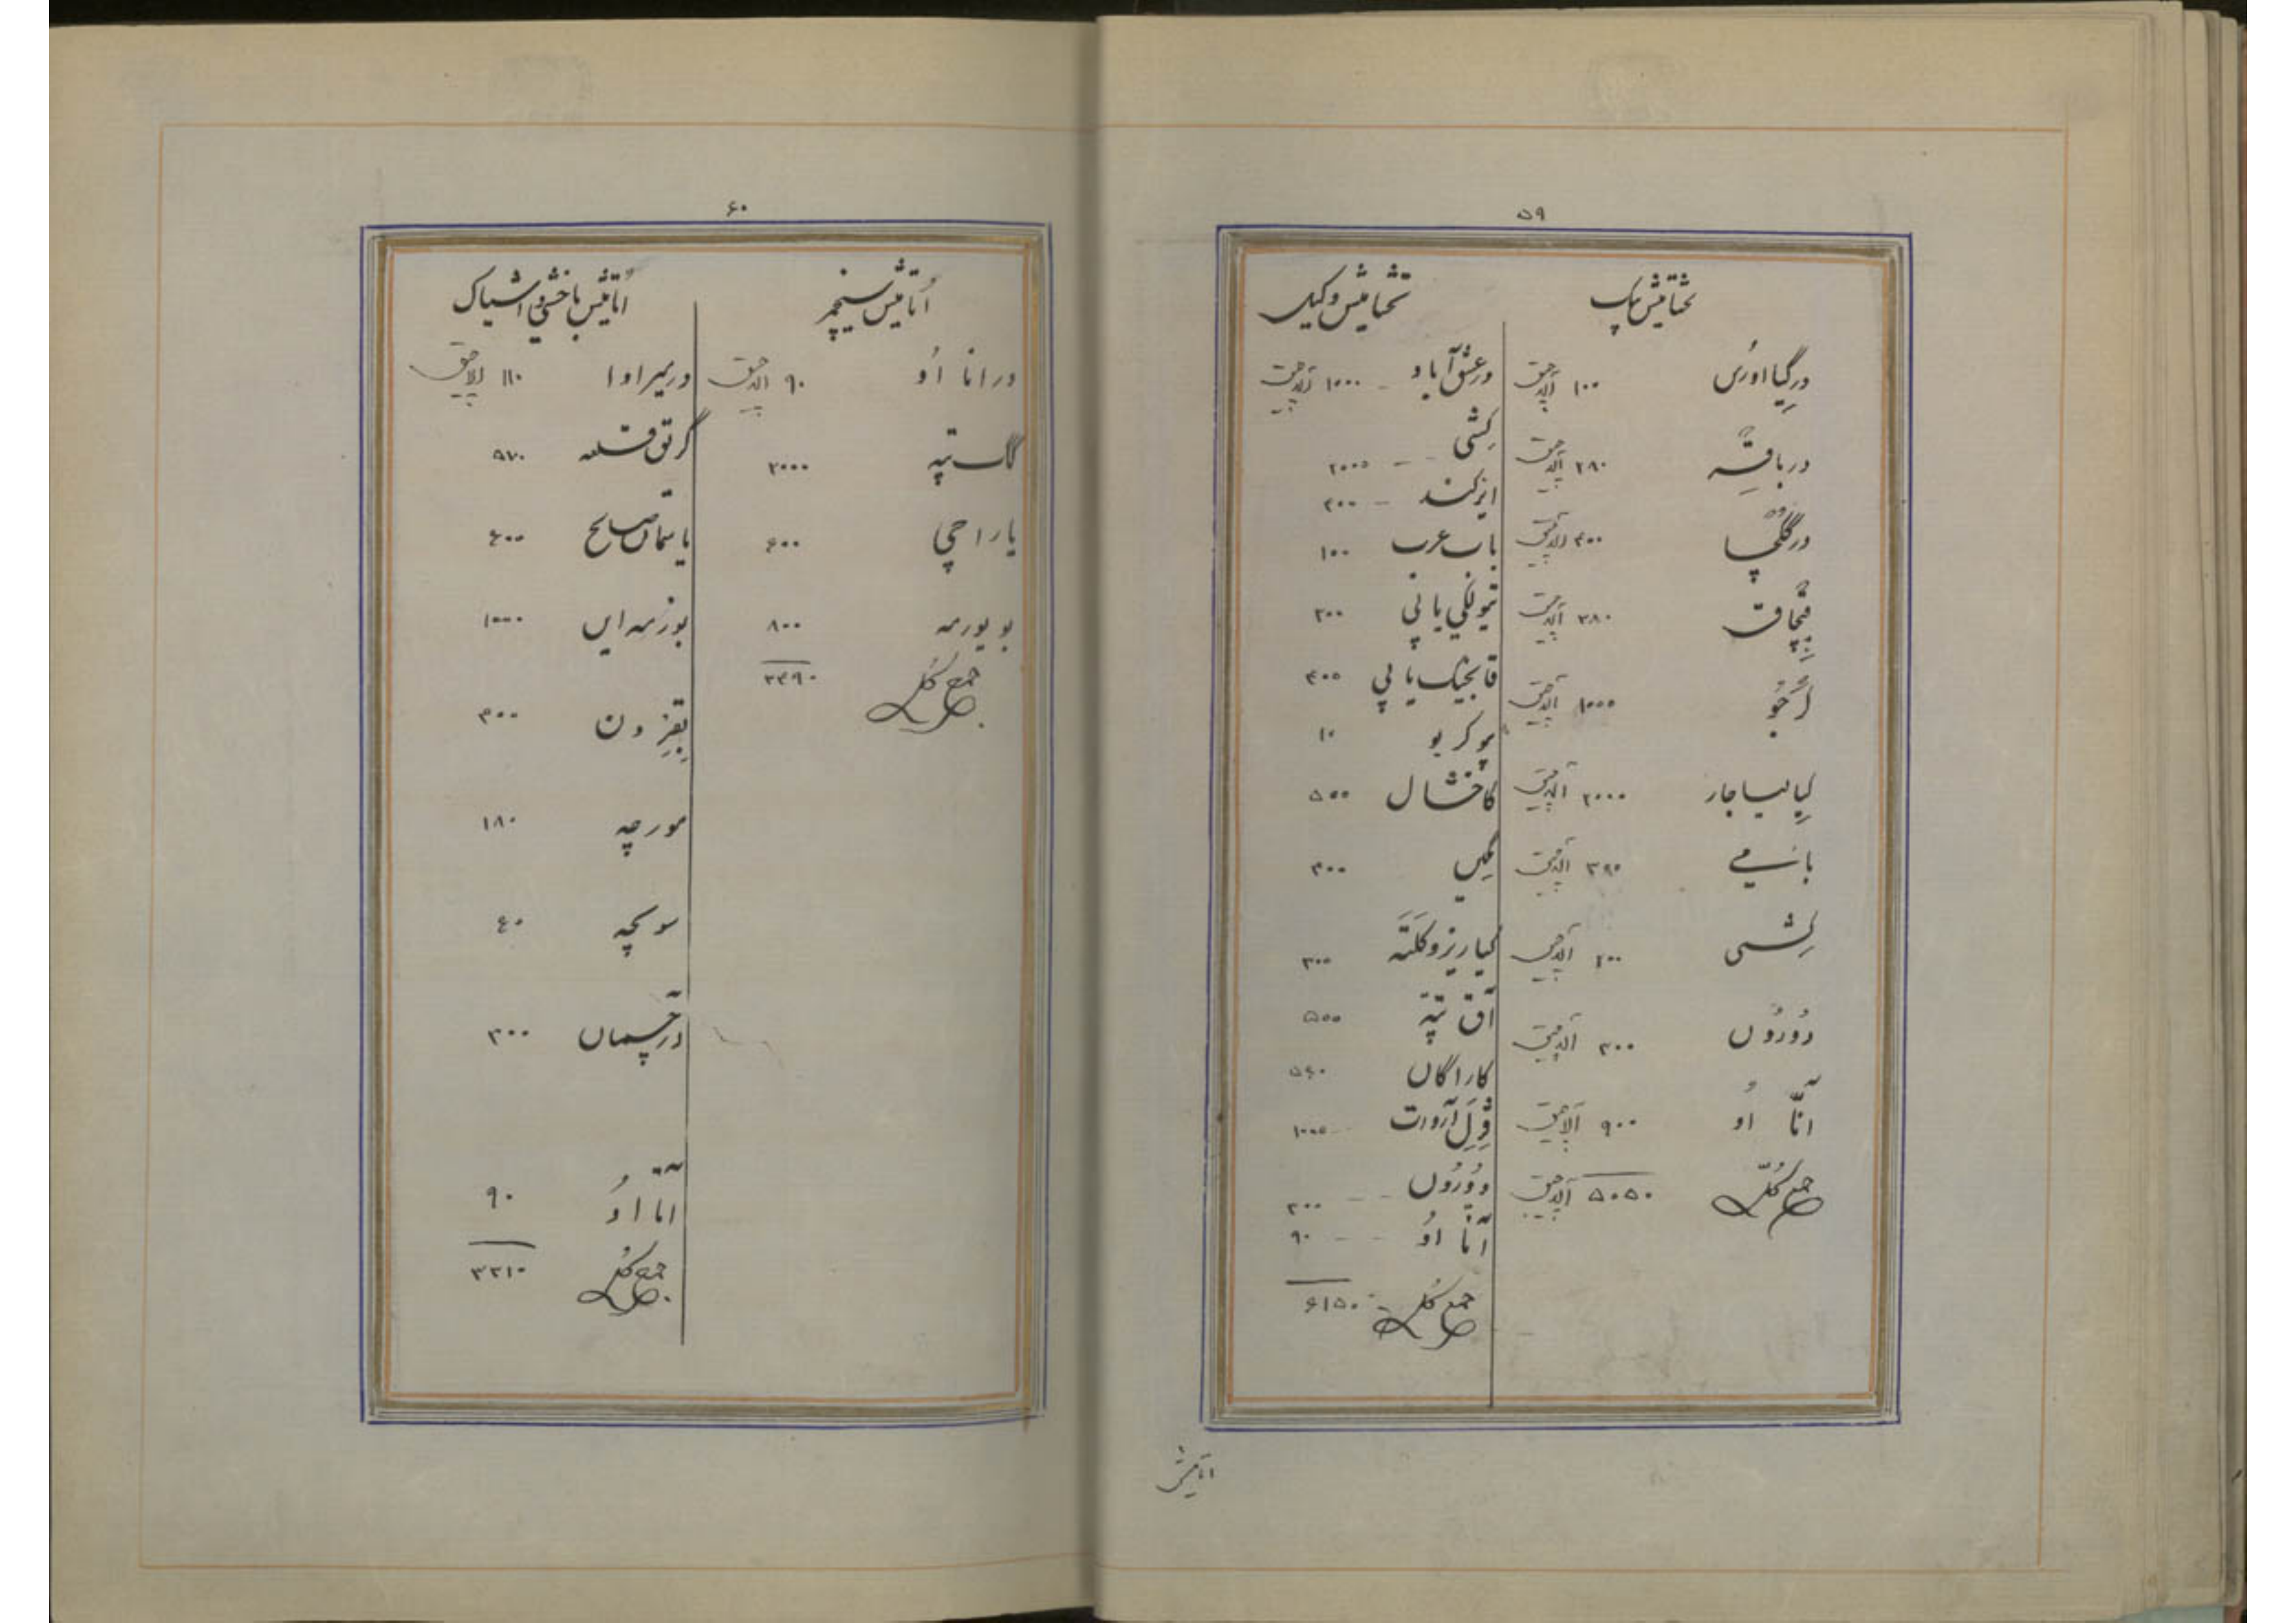 ۵۹
تختامیش بک
در گیااورس ۱۰۰ آلاچیق
در باقه ۲۸۰ آلاچیق
در گلچا ۴۰۰ آلاچیق
قپچاق ۳۸۰ آلاچیق
۱۰۰۰ آلاچیق
کیالیاجار ۲۰۰۰ آلاچیق
بامی ۳۹۰ آلاچیق
کشی ۲۰۰ آلاچیق
دورون ۳۰۰ آلاچیق
آنّا اوُ ۹۰۰ آلاچیق
جمع کل ۵۰۵۰ آلاچیق
تختامیش وکیل
در عشق آباد ۱۰۰۰ آلاچیق
کشی ۲۰۰۰
ایزکند ۴۰۰
باب عرب ۱۰۰
یاپی ۲۰۰
یاپی ۴۰۰
پوکر بو ۱۰
کاخشال ۵۰۰
۳۰۰
کیاریز و کلته ۳۰۰
آق تپه ۵۰۰
کاراگان ۵۴۰
قزل آروات ۱۰۰۰
دورون ۲۰۰
آنّا اوُ ۹۰
جمع کل ۶۱۵۰
اتامیش
۶۰
اُتامیش سیچمز
در انا اوُ ۹۰ آلاچیق
گاس تپه ۲۰۰۰
یاراجی ۶۰۰
بو یورمه ۸۰۰
جمع کل ۳۴۹۰
اُتامیش باخشی اشیاک
در میراوا ۱۱۰ آلاچیق
گرتق قلعه ۵۷۰
یاسمان صالح ۶۰۰
بوزمه این ۱۰۰۰
۴۰۰
مورچه ۱۸۰
سونچه ۶۰
در چسمان ۳۰۰
آنّا اوُ ۹۰
جمع کل ۳۳۱۰